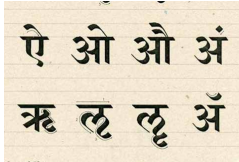 ऐ ओ औ अं
ऋ ऌ ॡ अँ